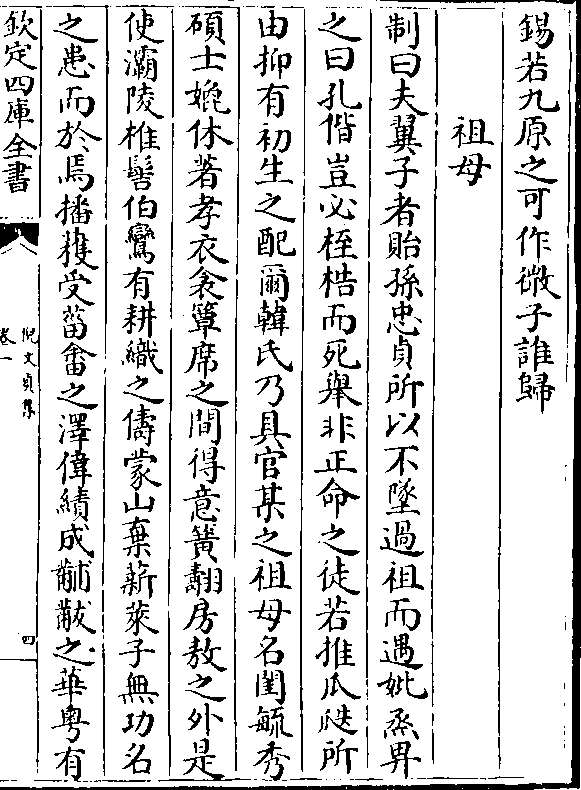 錫若九原之可作微子誰歸
祖母
制曰夫翼子者貽孫忠貞所以不墜過祖而遇妣烝畀
之曰孔偕豈必桎梏而死舉非正命之徒若推瓜瓞所
由抑有初生之配爾韓氏乃具官某之祖母名閨毓秀
碩士媲休著孝衣衾簟席之間得意簧翿房敖之外是
使灞陵椎髻伯鸞有耕織之儔蒙山棄薪萊子無功名
之患而於焉播穫受菑畬之澤偉績成黼黻之華粤有
欽定四庫全書
倪文貞集
卷一
四